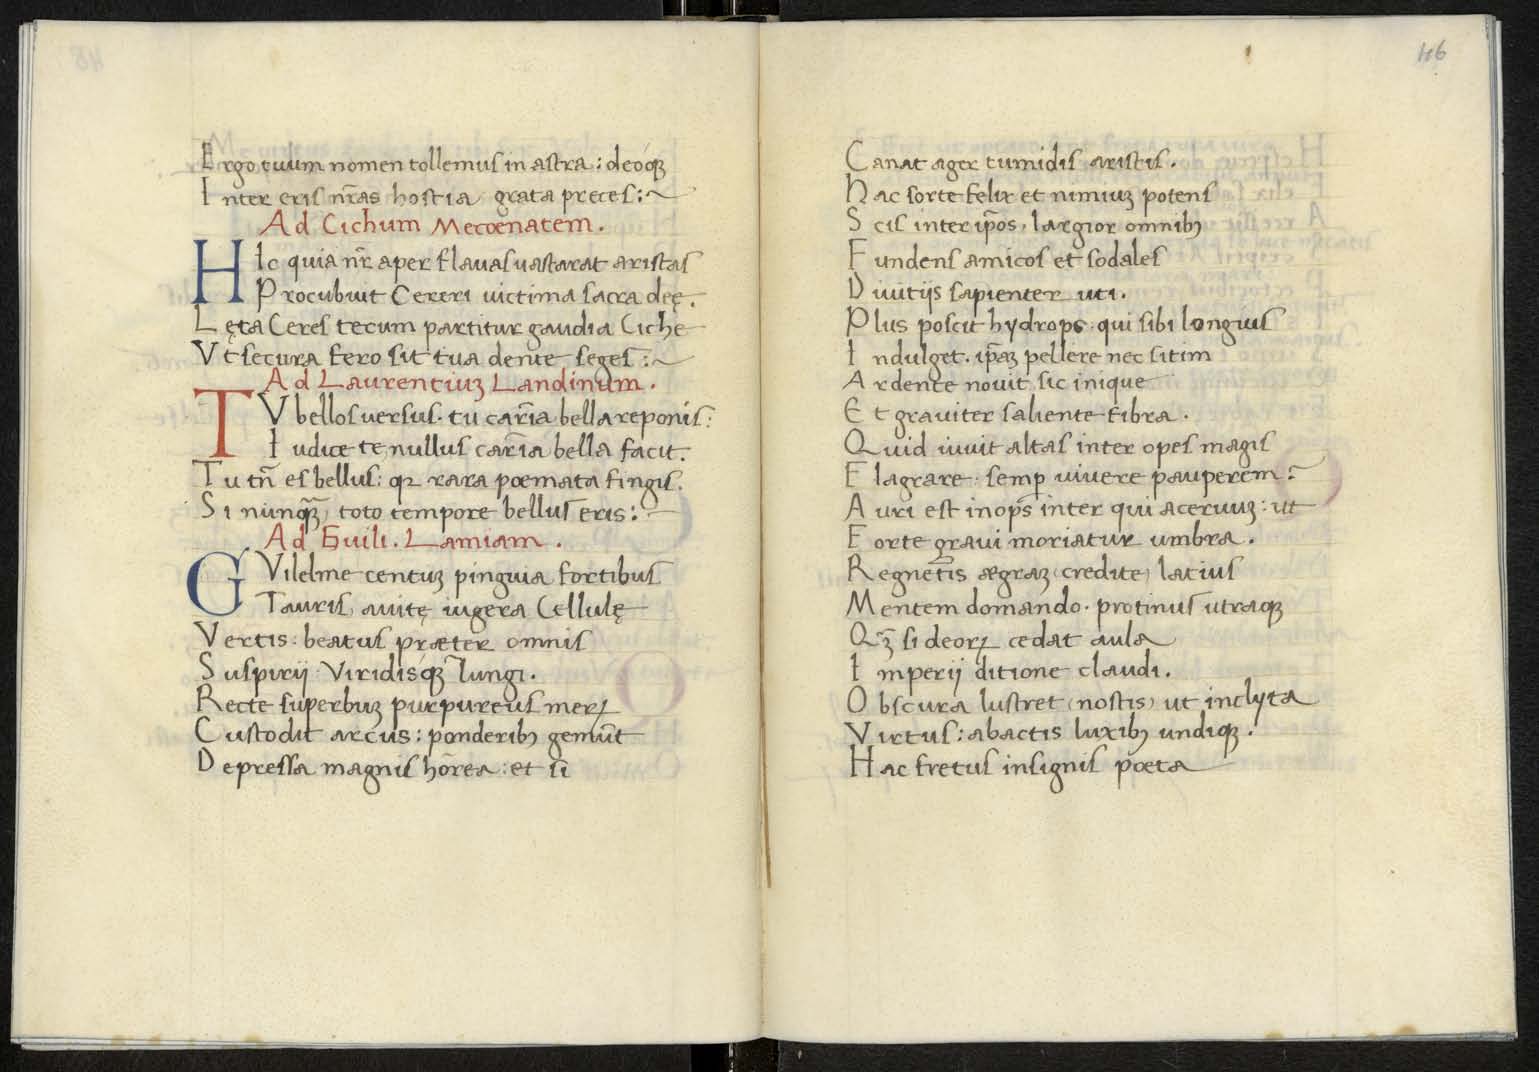 Ergo tuum nomen tollemus in astra : deóqꝫ
Inter eris nr̃as hostia grata preces : ~
Ad Cichum Mecœnatem .
HIc quia nr̃ aper flauas uastarat aristas
Procubuit Cereri uictima sacra deę .
Lęta Ceres tecum partitur gaudia Ciche
Vt secura fero sit tua dente seges : ~
Ad Laurentiuꝫ Landinum .
TV bellos uersus . tu carm̃ia bella reponis :
Iudice te nullus carm̃ia bella facit .
Tu tñ es bellus : qꝛ rara poemata fingis .
Si nunqꝫ̃ toto tempore bellus eris : ~
Ad Guili . Lamiam .
GVilelme centuꝫ pinguia fortibus
Tauris, auitę iugera Cellulę
Vertis : beatus præter omnis
Suspirij . Viridisqꝫ́ Iungi .
Recte superbuꝫ purpureus merꝝ
Custodit arcus : ponderibꝫ gemũt
Depressa magnis horrea : et si
46
Canat ager tumidis aristis .
Hac sorte felix et nimiuꝫ potens
Scis inter ip̃os, largior omnibꝫ
Fundens amicos et sodales
Diuitijs sapienter uti .
Plus poscit hydrops . qui sibi longius
Indulget . ip̃aꝫ pellere nec sitim
Ardente nouit sic inique
Et grauiter saliente fibra .
Quid iuuit altas inter opes magis
Flagrare : semp̱ uiuere pauperem ?
Auri est inops inter qui aceruuꝫ : ut
Forte graui moriatur umbra .
Regnet̃is ægraꝫ (credite) latius
Mentem domando . protinus utraqꝫ
Qꝫ̃ si deorꝝ cedat aula
Imperij ditione claudi .
Obscura lustret (nostis) ut inclyta
Virtus : abactis luxibꝫ undiqꝫ .
Hac fretus insignis poeta